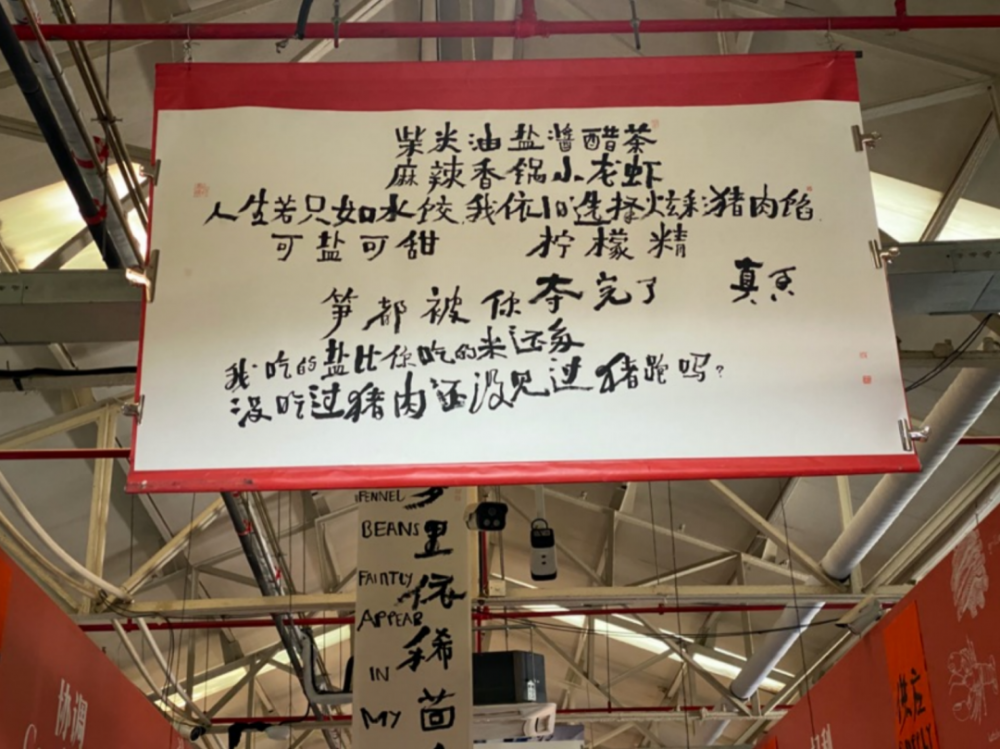 柴米油盐酱醋茶
麻辣香锅小龙虾
人生若只如水饺 我依旧选择炫彩猪肉馅
可盐可甜 柠檬精
笋都被你夺完了 真香
我吃的盐比你吃的米还多
没吃过猪肉还没见过猪跑吗?
FENNEL
BEANS
FAINTLY
APPEAR
IN
MY
里依稀茴
协调
供应